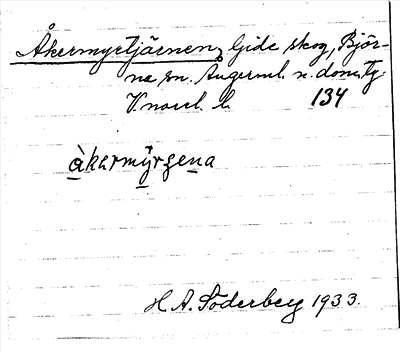 Åkermyrtjärnen, Gide skog, Björ-
na sn. Ångerml. n. doms.
V. norrl. l. 134
åkarmy̆rʒena
H. A. Söderberg 1933.